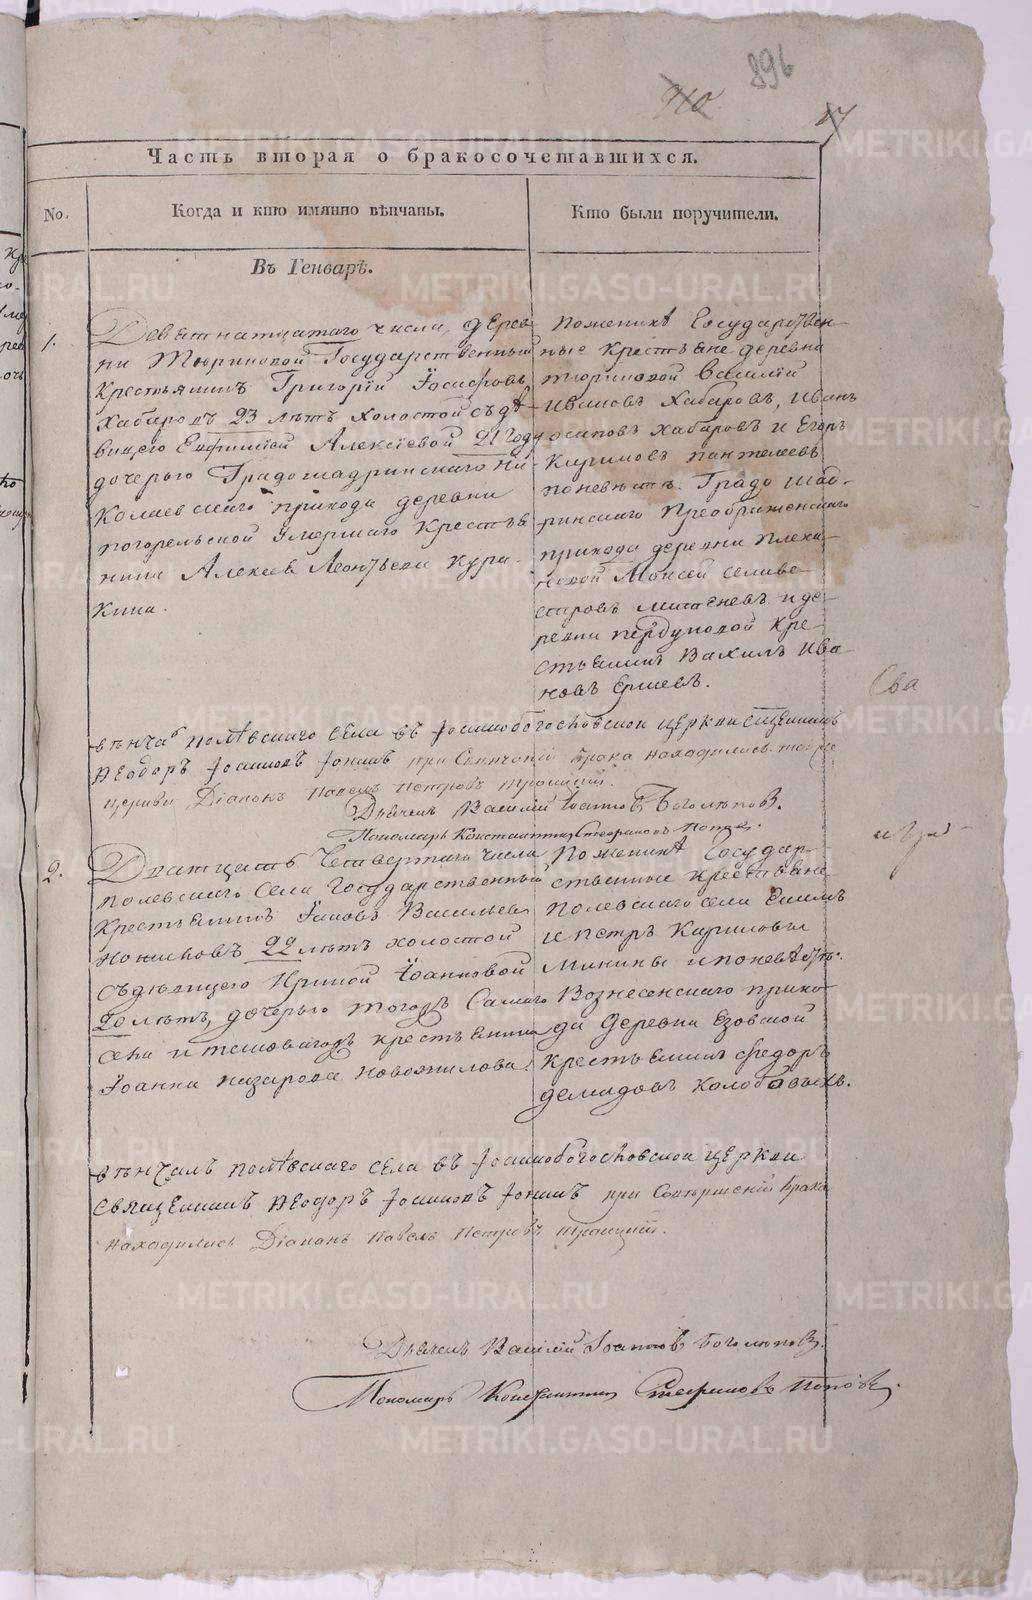 396
910
17
Часть вторая о бракосочетавшихся.
No.
Когда и кто имянно вѣнчаны.
Кто были поручители.
Въ Генварѣ.
1.
Девятнатцатаго числа, дерев
ни Тюриковой Государственный
крестьянинъ Григорій Іосифовъ
Хабаровъ 23 лѣтъ холостой съ дѣ-
вицею Евфиміей Алексіевой 21 году
дочерью Градошадринскаго Ни-
колаевскаго прихода деревни
погорельской умершаго крестья
нина Алексея Леонтьева Кура-
кина.
по женихѣ Государствен-
ные крестьяне деревни
тюриковой Василій
Ивановъ Хабаровъ, Иванъ
осиповъ хабаровъ и Егоръ
Кириловъ пантелеевъ,
по невѣстѣ. Градо шад-
ринскаго Преображенскаго
прихода деревни плеха-
новой Моисей селиве-
стровъ и де-
ревни кре-
стьянинъ Ива
новъ Ершевъ.
Сва
вѣнча полѣвскаго села въ Іоаннобогословской церкви священникъ
Ѳеодоръ Іоанновъ при брака находились тойже
церкви Діаконъ Павелъ Петровъ Троицкій.
Дьячекъ Василій Іоанновъ Боголѣповъ.
Пономарь Константинъ Стефановъ Поповъ.
2.
Дватцать Четвертаго числа
полевскаго Села Государственный
Крестьянинъ Іаковъ Васильевъ
Ножниковъ 22 лѣтъ холостой
съ дѣвицею Ириной Іоанновой
20 лѣтъ, дочерью тогожъ Самаго
села и таковагожъ крестьянина
Іоанна назарова новожилова.
По женихѣ Государ-
ственные крестьяне
Полевскаго села Екимъ
и петръ Кириловы
Минины и по невѣстѣ.
Вознесенскаго прихо-
да деревни Езовской
крестьянинъ Федоръ
демидовъ Колобовыхъ.
вѣнчалъ полѣвскаго села въ Іоаннобогословской церкви
священникъ Ѳеодоръ Іоанновъ при Совершеніи брака
находились Діаконъ Павелъ Петровъ Троицкій.
Дьячекъ Василій Іоанновъ Боголѣповъ.
Пономарь Константинъ Стефановъ Поповъ.
METRIKI.GASO-URAL.RU